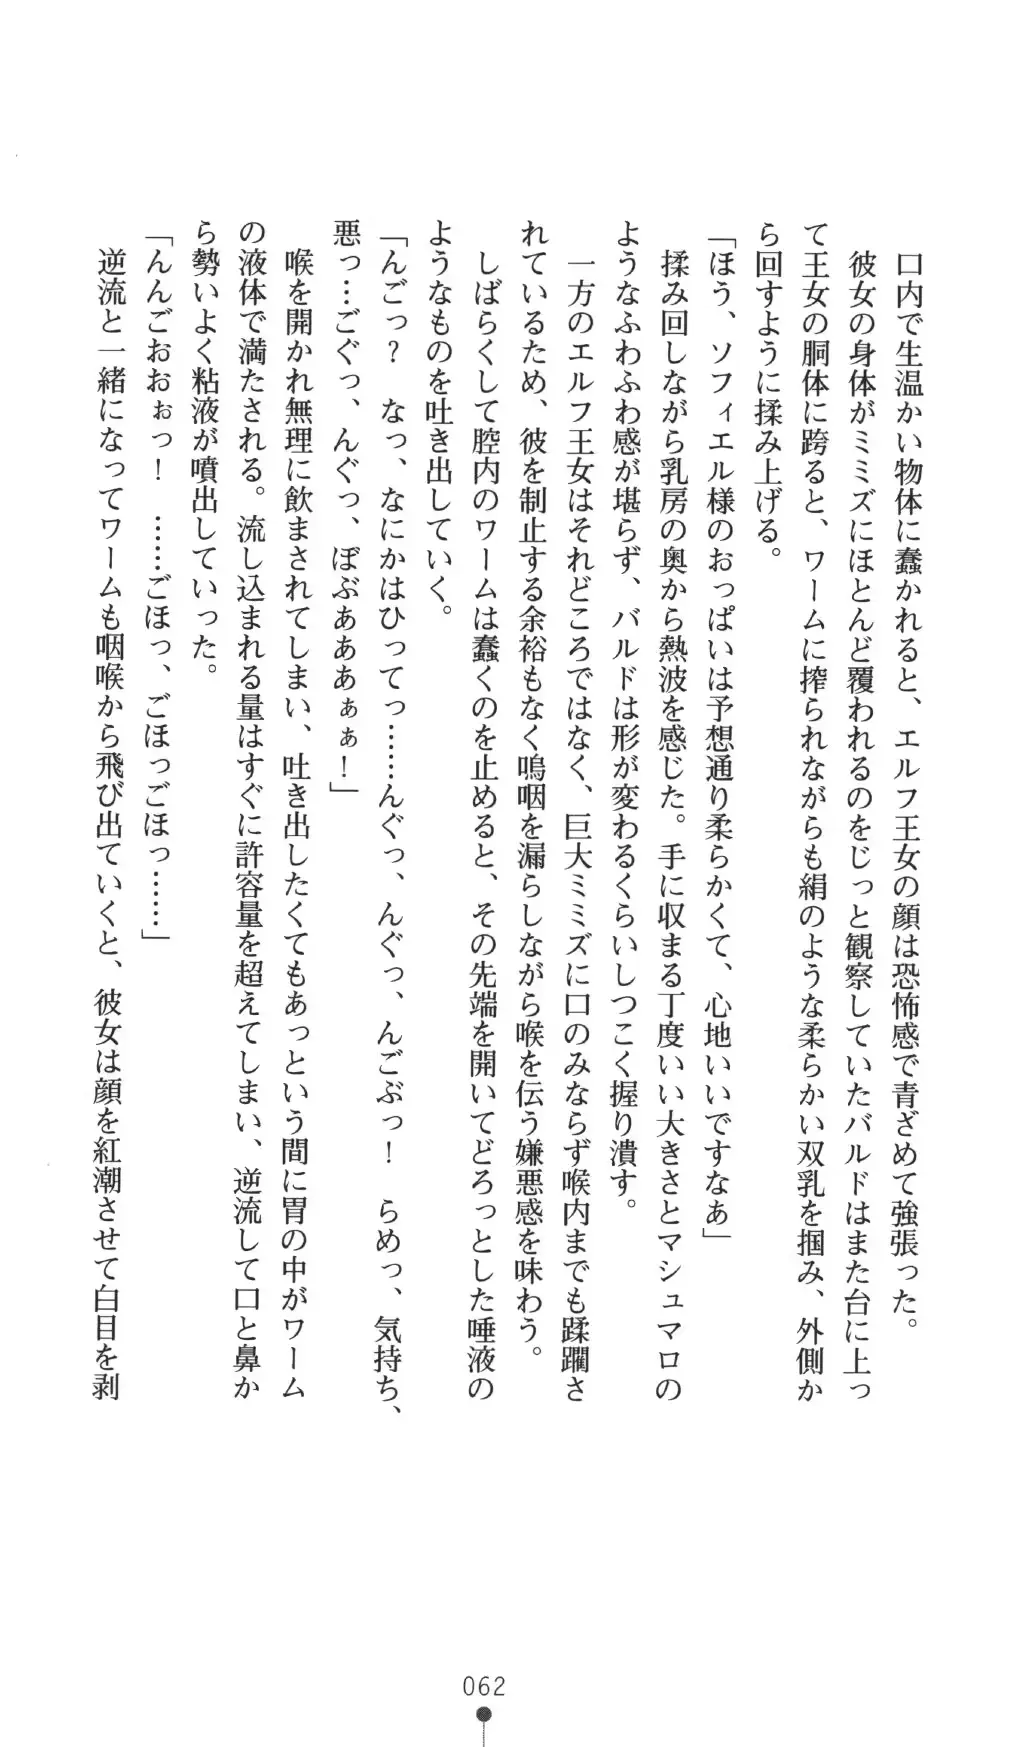 口内で生温かい物体に蠢かれると、エルフ王女の顔は恐怖感で青ざめて強張った。
彼女の身体がミミズにほとんど覆われるのをじっと観察していたバルドはまた台に上っ
て王女の胴体に跨ると、ワームに搾られながらも絹のような柔らかい双乳を掴み、外側か
ら回すように揉み上げる。
「ほう、ソフィエル様のおっぱいは予想通り柔らかくて、心地いいですなあ」
揉み回しながら乳房の奥から熱波を感じた。手に収まる丁度いい大きさとマシュマロの
ようなふわふわ感が堪らず、バルドは形が変わるくらいしつこく握り潰す。
一方のエルフ王女はそれどころではなく、巨大ミミズに口のみならず喉内までも蹂躙さ
れているため、彼を制止する余裕もなく嗚咽を漏らしながら喉を伝う嫌悪感を味わう。
しばらくして腔内のワームは蠢くのを止めると、その先端を開いてどろっとした唾液の
ようなものを吐き出していく。
「んごっ？　なっ、なにかはひってっ……んぐっ、んぐっ、んごぶっ！　らめっ、気持ち、
悪っ…ごぐっ、んぐっ、ぼぶあああぁぁ！」
喉を開かれ無理に飲まされてしまい、吐き出したくてもあっという間に胃の中がワーム
の液体で満たされる。流し込まれる量はすぐに許容量を超えてしまい、逆流して口と鼻か
ら勢いよく粘液が噴出していった。
「んんごおおぉっ！　……ごほっ、ごほっごほっ……」
逆流と一緒になってワームも咽喉から飛び出ていくと、彼女は顔を紅潮させて白目を剥
062